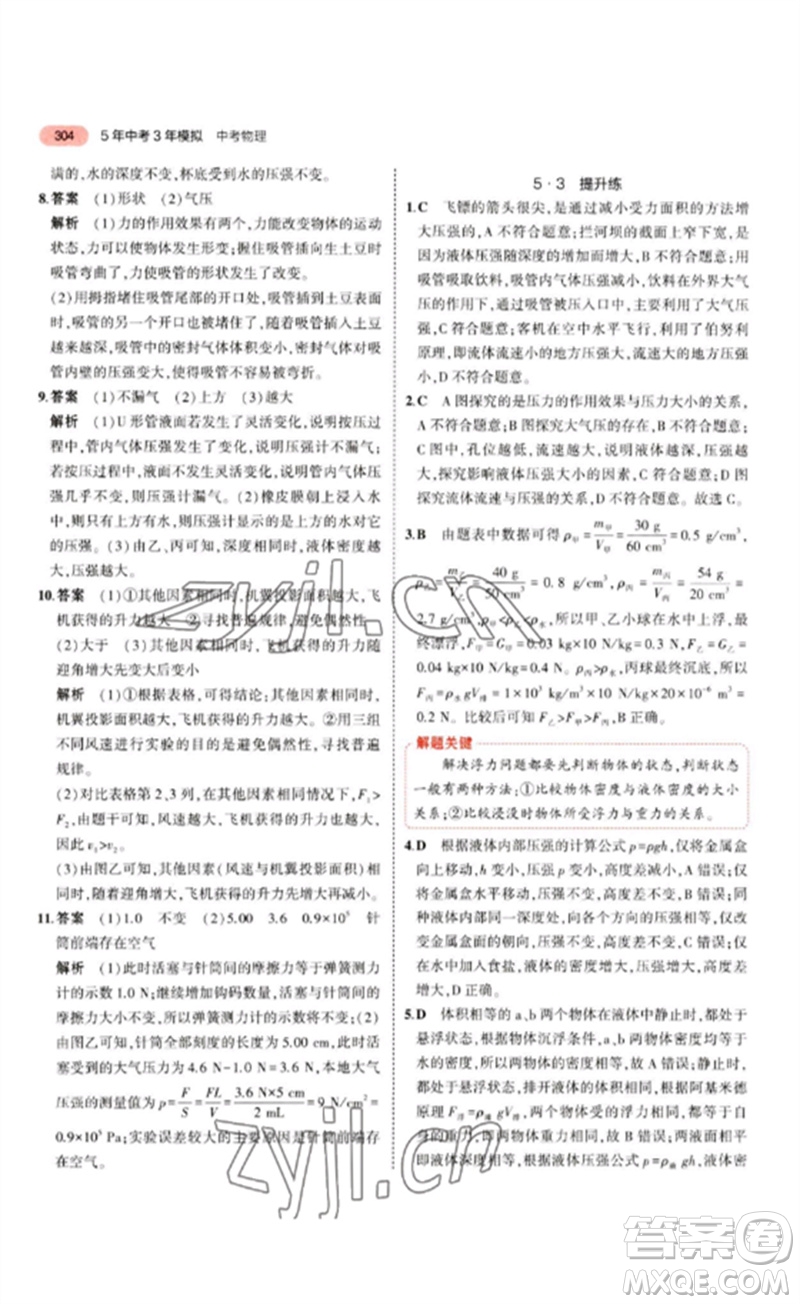 304 5年中考3年模拟 中考物理
满的,水的深度不变,杯底受到水的压强不变。
8.答案 (1)形状 (2)气压
解析 (1)力的作用效果有两个,力能改变物体的运动
状态,力能使物体发生形变;握住吸管插向生土豆时
吸管弯曲了,力使吸管的形状发生了改变。
(2)用拇指堵住吸管尾部的开口处,吸管插到土豆表面
时,吸管的另一个开口也被堵住了,随着吸管插入土豆
越来越深,吸管中的密封气体体积变小,密封气体对吸
管内壁的压强变大,使得吸管不容易被弯折。
9.答案 (1)不漏气 (2)上方 (3)越大
解析 (1)U形管液面若发生了灵活变化,说明按压过
程中,管内气体压强也在灵活变化,说明压强计不漏气;
若按压过程中,液面不发生灵活变化,说明管内气体压
强几乎不变,则压强计漏气。(2)橡皮膜朝上浸入水
中,则只有上方有水,则压强计显示的是上方的水对它
的压强。(3)由乙、丙可知,深度相同时,液体密度越
大,压强越大。
10.答案 (1)①其他因素相同时,机翼投影面积越大,飞
机获得的升力越大 ②寻找普遍规律,避免偶然性
(2)大于 (3)其他因素相同时,飞机获得的升力随
迎角增大先变大后变小
解析 (1)①根据表格,可得结论;其他因素相同时,
机翼投影面积越大,飞机获得的升力越大。②用三组
不同风速进行实验的目的是避免偶然性,寻找普遍
规律。
(2)对比表格第2、3列,在其他因素相同时,F₁>
F₂,又由表中数据可知,风速越大,飞机的升力越大,
因此v₁>v₂。
(3)由图乙可知,其他因素(风速与机翼投影面积)相
同时,随着迎角增大,飞机获得的升力先变大后变小。
11.答案 (1)1.0 不变 (2)5.00 3.6 0.9×10⁵ 针
筒前端存在空气
解析 (1)此时活塞与针筒间的摩擦力等于弹簧测力
计的示数1.0 N;继续增加钩码数量,活塞与针筒间的
摩擦力大小不变,所以弹簧测力计的示数不变;(2)
由图乙可知,针筒全部刻度的长度为5.00 cm;此时活
塞受到的大气压力为4.6 N-1.0 N=3.6 N,本地大气
压强的测量值为p=F/S=FL/V=3.6 N×5 cm/2 mL=9 N/cm²=
0.9×10⁵ Pa;实验误差较大的主要原因是针筒前端存
在空气。
5·3 提升练
1.C 飞镖的箭头很尖,是通过减小受力面积的方法增
大压强的,A不符合题意;拦河坝的形状上窄下宽,是
因为液体压强随深度的增加而增大,B不符合题意;用
吸管吸取饮料,吸管内气体压强减小,饮料在外界大气
压的作用下,通过吸管被压入口中,主要利用了大气压
强,C符合题意;客机在空中水平飞行,利用了伯努利
原理,即流体流速小的地方压强大,流速大的地方压强
小,D不符合题意。
2.C A图探究的是压力的作用效果与压力大小的关系,
A不符合题意;B图探究大气压强的存在,B不符合题
意;C图中,孔位越低,流速越快,说明液体越深,压强越
大,探究影响液体压强大小的因素,C符合题意;D图
探究流体流速与压强的关系,D不符合题意。故选C。
3.B 由题表中数据可得ρ甲=m甲/V甲=30 g/60 cm³=0.5 g/cm³,
ρ乙=m乙/V乙=40 g/50 cm³=0.8 g/cm³,ρ丙=m丙/V丙=54 g/20 cm³=
2.7 g/cm³,ρ甲<ρ乙<ρ水,所以甲、乙小球在水中上浮,最
终漂浮,F甲=G甲=0.03 kg×10 N/kg=0.3 N,F乙=G乙=
0.04 kg×10 N/kg=0.4 N。ρ丙>ρ水,丙球最终沉底,
F丙=ρ水gV排=1×10³ kg/m³×10 N/kg×20×10⁻⁶ m³=
0.2 N。比较后可知F乙>F甲>F丙,B正确。
解题关键
解决浮力问题都要先判断物体的状态,判断状态
一般有两种方法;①比较物体密度与液体密度的大小
关系;②比较浸没时物体所受浮力与重力的关系。
4.D 根据液体内部压强的计算公式p=ρgh,仅将金属盒
向上移动,h变小,压强p变小,高度差减小,A错误;仅
将金属盒向左移动,h不变,压强不变,高度差不变,B错误;同
种液体内部同一深度,向各个方向的压强相等,仅改变
金属盒的朝向,压强不变,高度差不变,C错误;仅向水
中加入食盐,液体密度变大,压强变大,高度差变大,D
正确。
5.D 体积相等的a、b两个物体在液体中静止时,都处于
悬浮状态,根据物体沉浮条件,a、b两物体密度均等于
水的密度,所以两个物体的密度相同,故A错误;a、b
都处于悬浮状态,排开液体的体积相同,根据阿基米德
原理F浮=ρ液gV排可知,浮力相等,悬浮时浮力等于自
身的重力,即两物体重力相同,故B错误;两液面相平
即液体深度相等,根据液体压强公式p=ρ液gh,液体密
zyjl.cn
zyjl.cn
答案圈
MXQE.COM